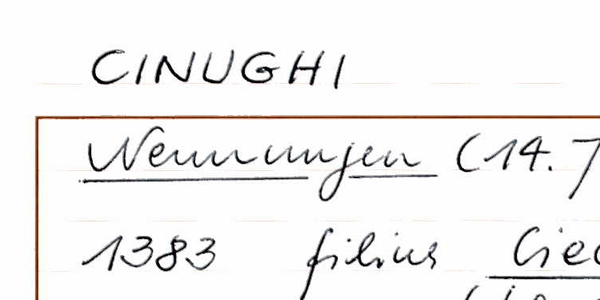 CINUGHI
Nennungen (14.
1383 filius